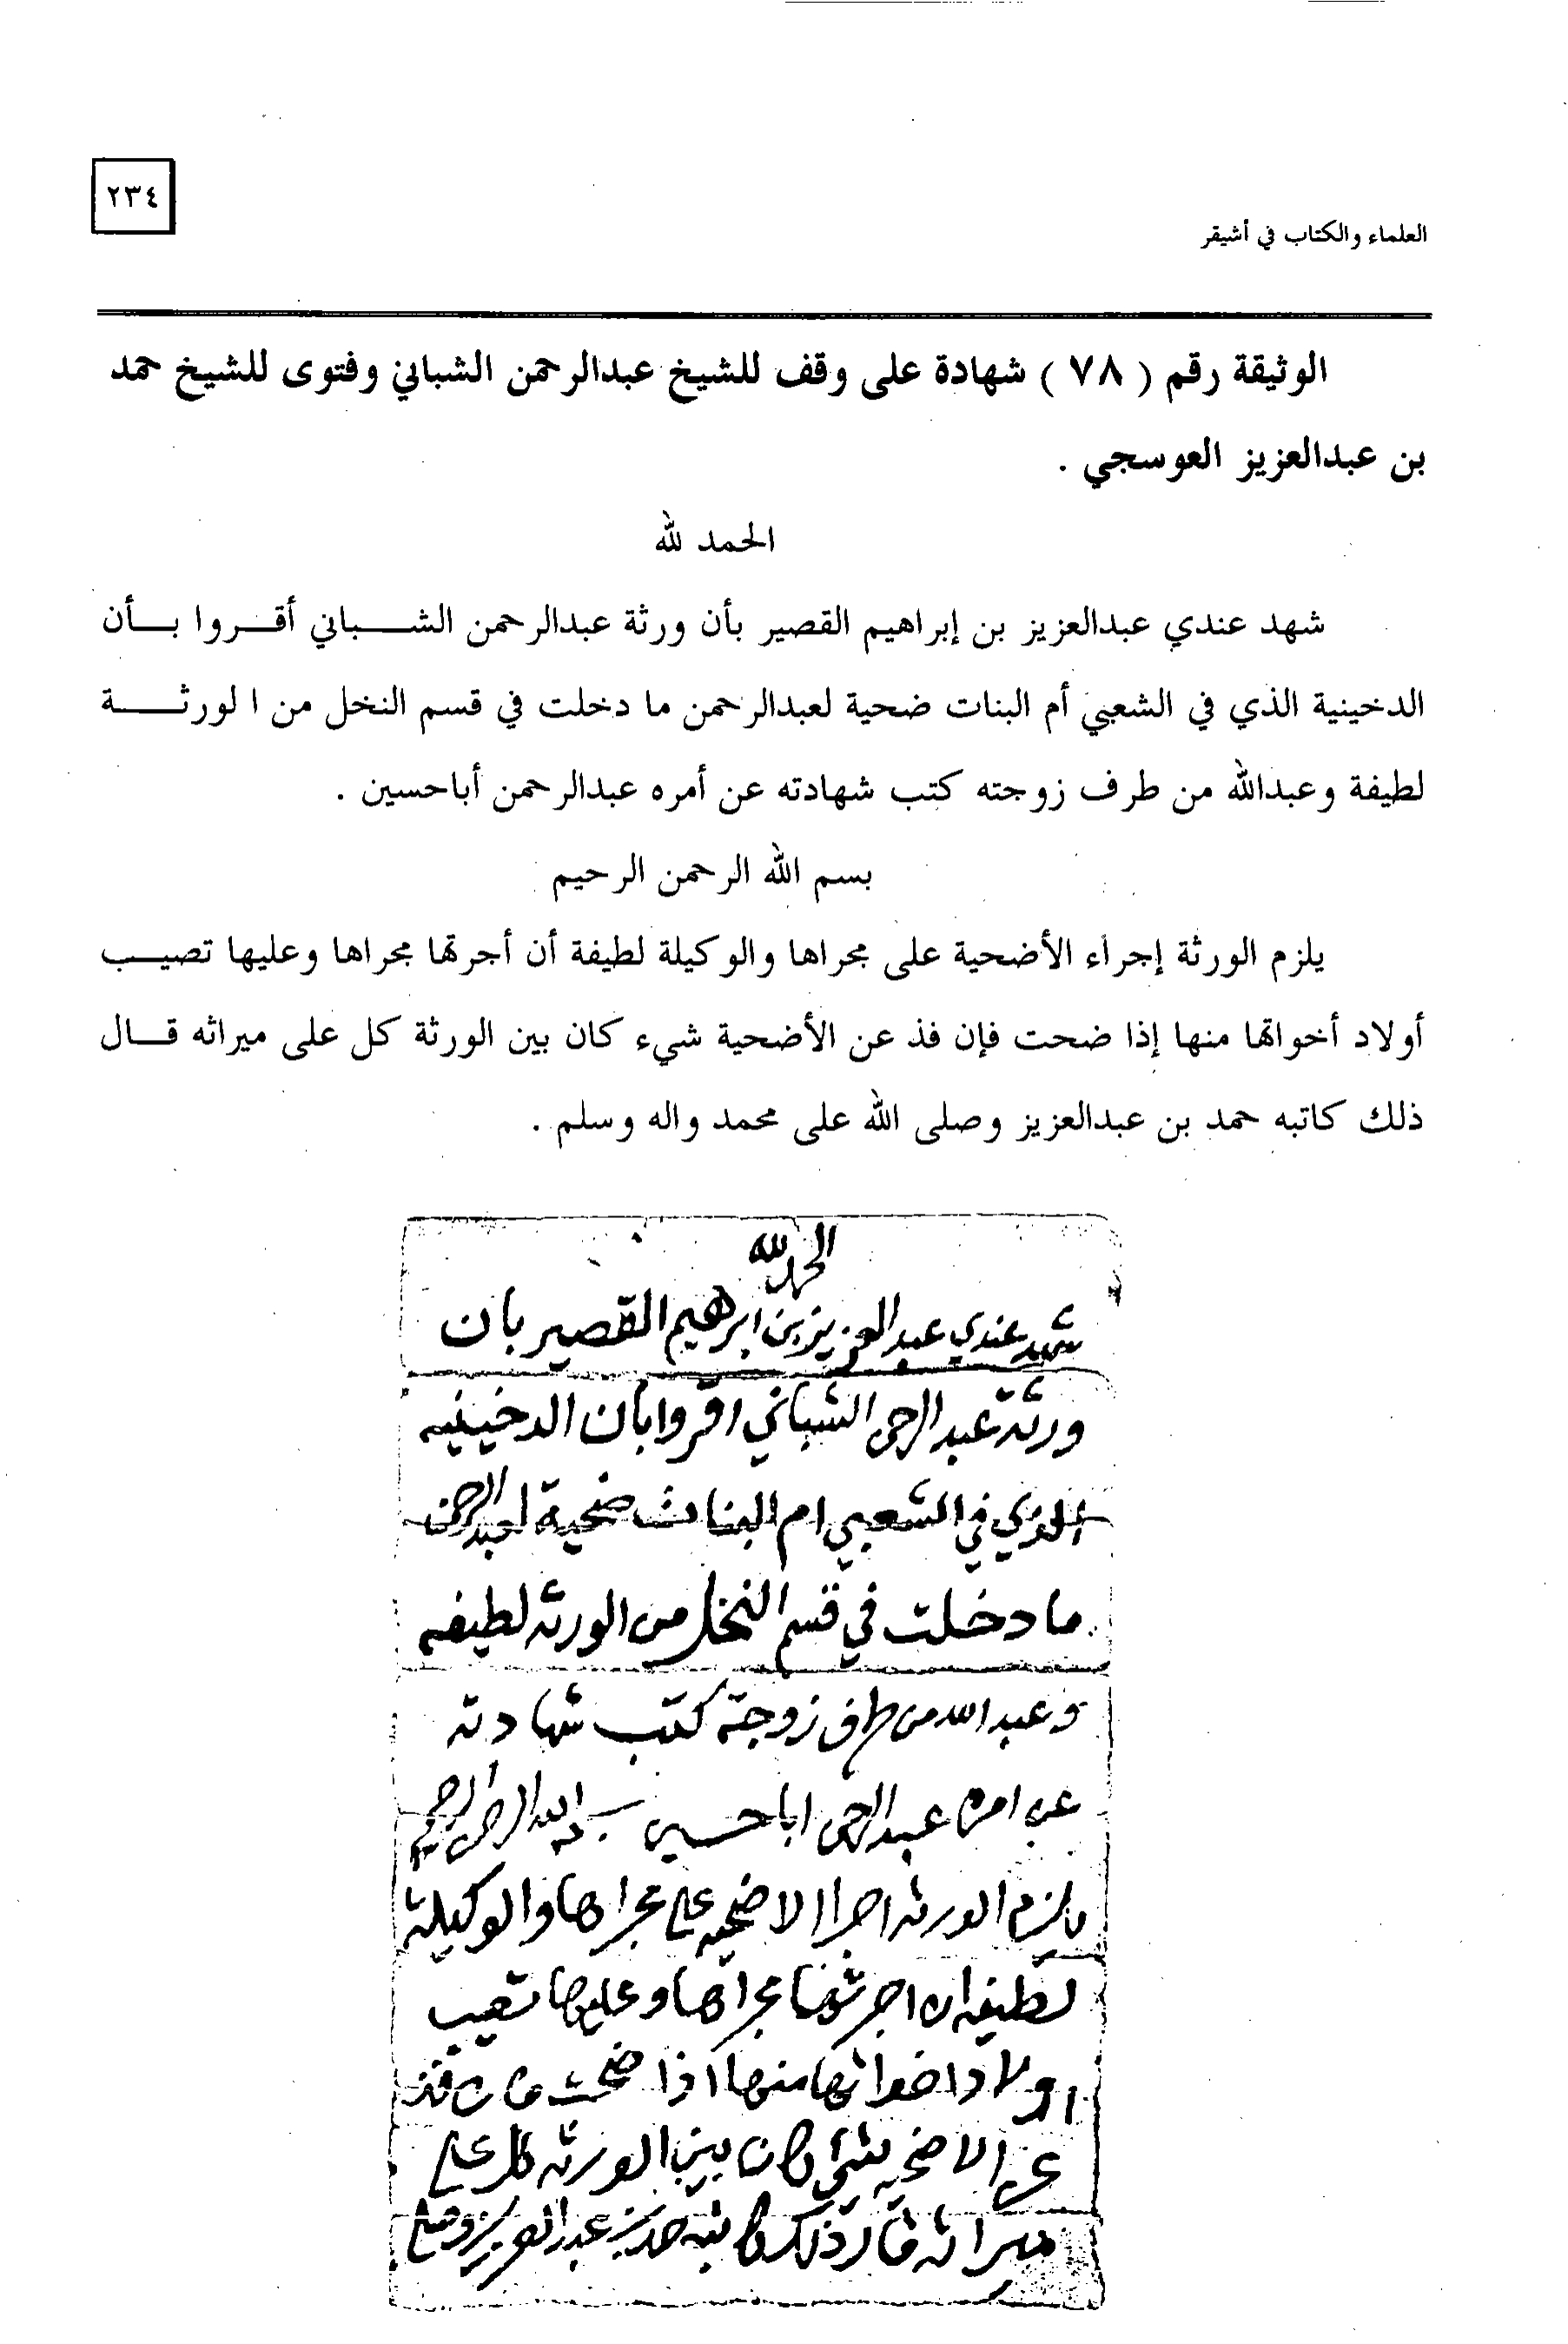 ٢٣٤
العلماء والكتاب في أشيقر
الوثيقة رقم ( ٧٨ ) شهادة على وقف للشيخ عبدالرحمن الشباني وفتوى للشيخ حمد
بن عبدالعزيز العوسجي .
الحمد لله
شهد عندي عبدالعزيز بن إبراهيم القصير بأن ورثة عبدالرحمن الشباني أقروا بأن
الدخينية الذي في الشعبي أم البنات ضحية لعبدالرحمن ما دخلت في قسم النخل من الورثة
لطيفة وعبدالله من طرف زوجته كتب شهادته عن أمره عبدالرحمن أباحسين .
بسم الله الرحمن الرحيم
يلزم الورثة إجراء الأضحية على مجراها والوكيلة لطيفة أن أجرتها مجراها وعليها تصيب
أولاد أخواتها منها إذا ضحت فإن فذ عن الأضحية شيء كان بين الورثة كل على ميراثه قال
ذلك كاتبه حمد بن عبدالعزيز وصلى الله على محمد واله وسلم .
الحمد لله
شهد عندي عبد العزيز بن ابرهيم القصير بان
ورثة عبد الرحمن الشباني اقروا بأن الدخينيه
الذي في الشعبي ام البنات ضحية لعبد الرحمن
ما دخلت في قسم النخل من الورثه لطيفه
وعبد الله من طرف زوجته كتب شهادته
عن امره عبد الرحمن اباحسين بسم الله الرحمن الرحيم
يلزم الورثه اجرا الاضحيه على مجراها والوكيلة
لطيفه ان اجرتها مجراها وعليها تصيب
اولاد اخواتها منها اذا ضحت فان فذ
عن الاضحيه شي كان بين الورثه كل على
ميراثه قال ذلك كاتبه حمد بن عبد العزيز وصلى